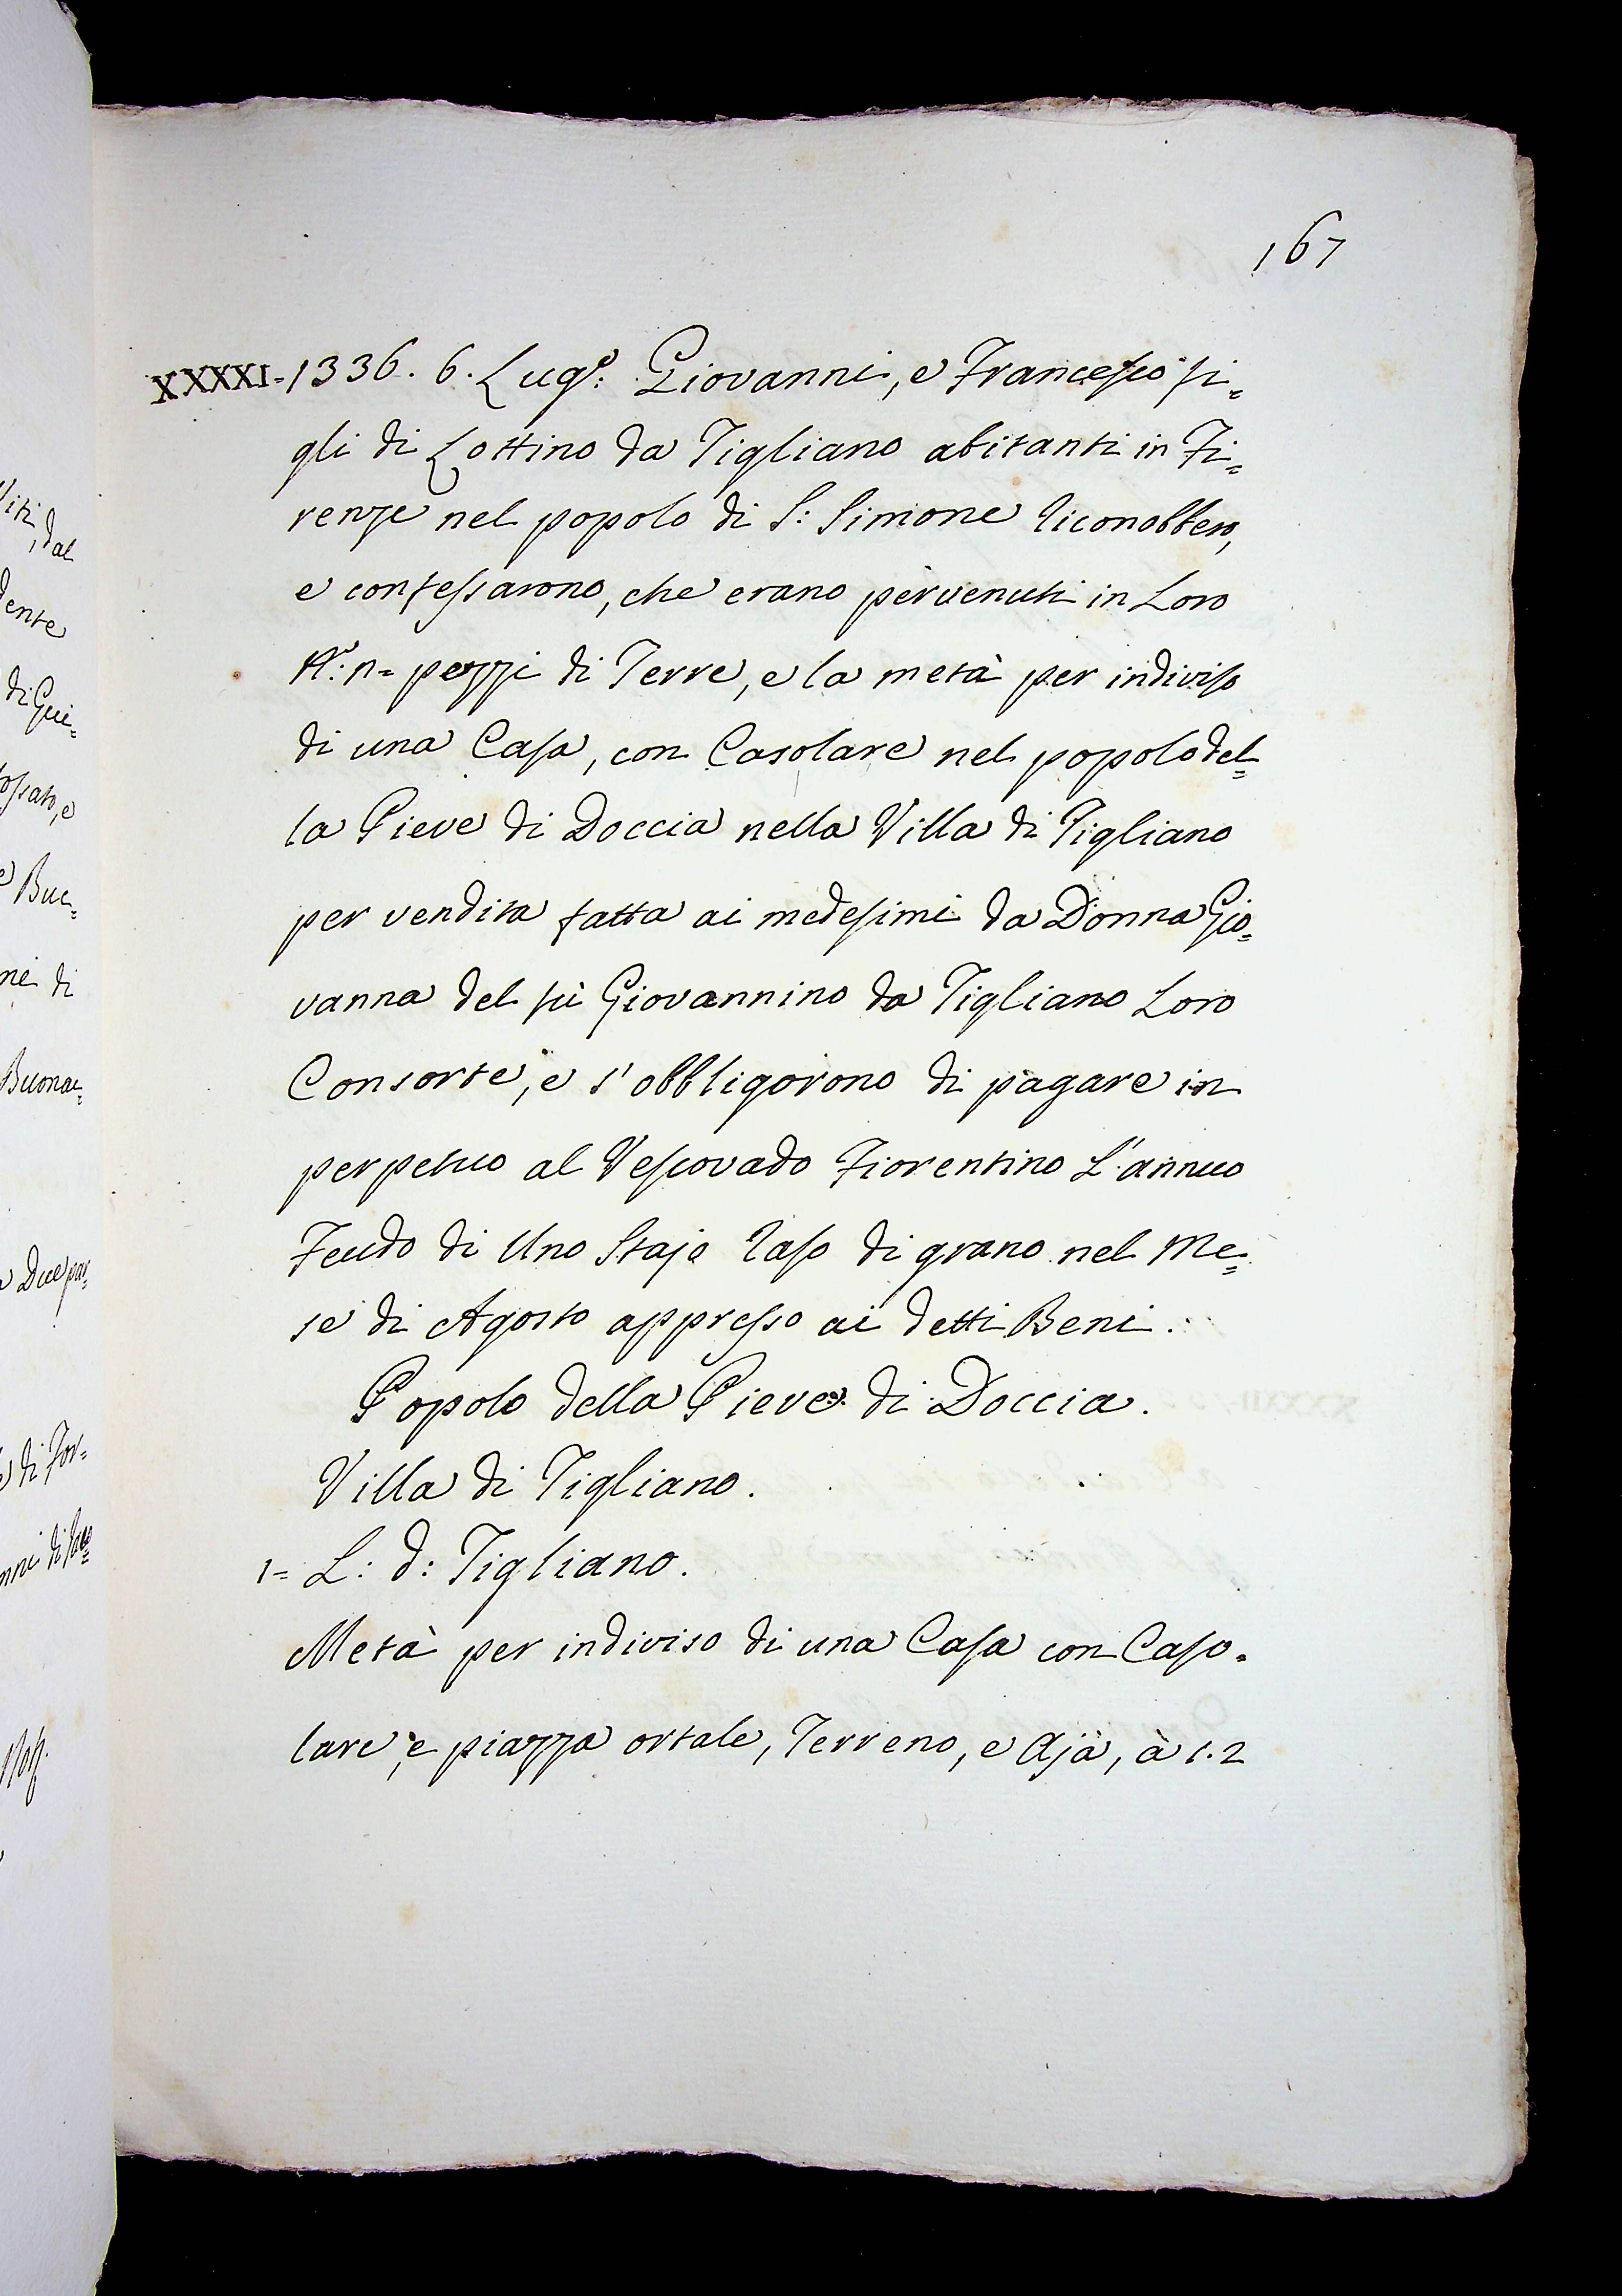 167
XXXXI=1336. 6. Lugo: Giovanni, e Francesco fi=
gli di Lottino da Tigliano abitanti in Fi=
renze nel popolo di S: Simone riconobbero,
e confessarono, che erano pervenuti in Loro
pezzi di Terre, e la metà per indiviso
di una Casa, con Casolare nel popolo del=
la Pieve di Doccia nella Villa di Tigliano
per vendita fatta ai medesimi da Donna Gio=
vanna del fù Giovannino da Tigliano Loro
Consorte, e s'obbligorono di pagare in
perpetuo al Vescovado Fiorentino L'annuo
Feudo di Uno Stajo raso di grano nel Me=
se di Agosto appresso ai detti Beni.
Popolo della Pieve di Doccia.
Villa di Tigliano.
1= L: d: Tigliano.
Metà per indiviso di una Casa con Caso=
lare, e piazza ortale, Terreno, e Aja, à 1.2
dal
dente
di Gui=
Buc=
di
Buona=
Due par=
di For=